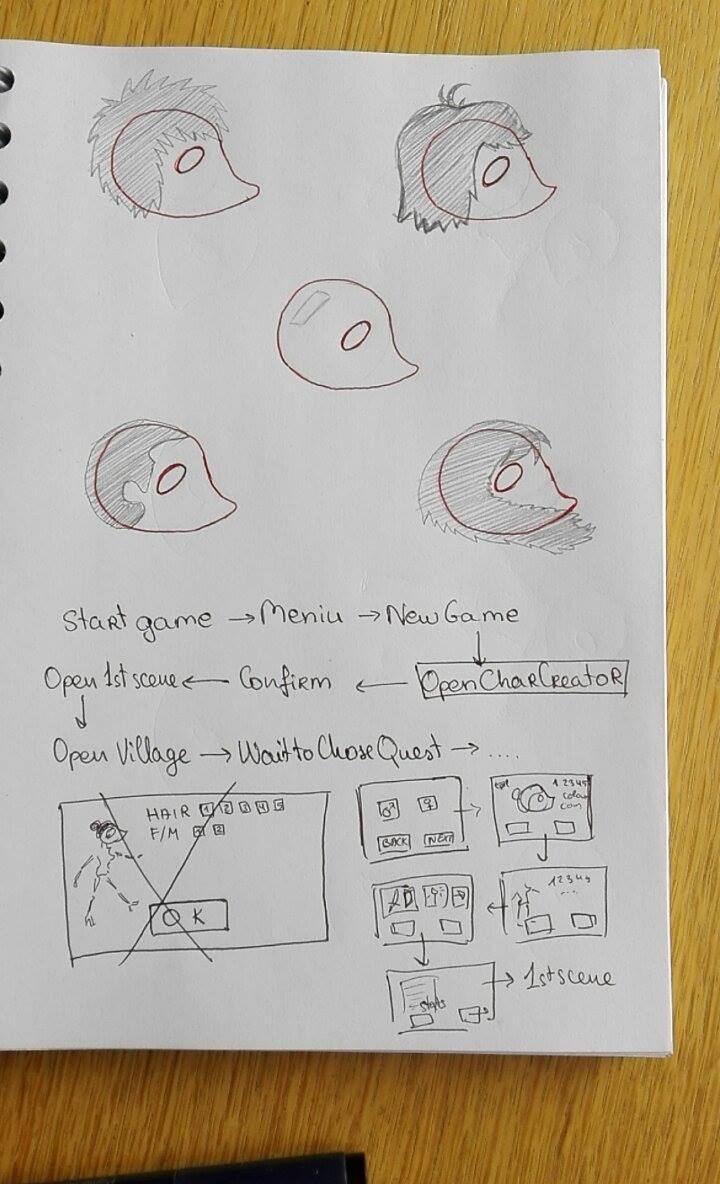 Start game → Meniu → New Game
Open 1st scene ← Confirm ← Open Char Creator
Open Village → Wait to Chose Quest → ....
HAIR 1 2 3 4 5
F/M 1 2
OK
♂ ♀
BACK NEXT
1 2 3 4 5
1 2 3 4 5
...
stats
→ 1st scene